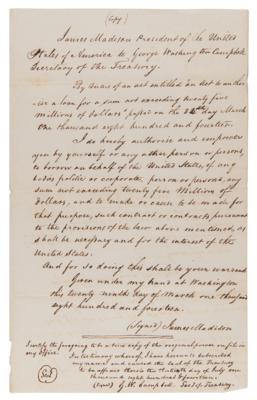 (Copy)
James Madison President of the United
States of America to George Washington Campbell
Secretary of the Treasury.
By virtue of an act entitled "an act to authorize
a loan for a sum not exceeding twenty five
millions of dollars" passed on the 24th day March
one thousand eight hundred and fourteen.
I do hereby authorize and empower
you by yourself or any other person or persons,
to borrow on behalf of the United States, of any
bodies politic or corporate, person or persons, any
sum not exceeding twenty five Millions of
dollars, and to make or cause to be made for
that purpose, such contract or contracts pursuant
to the provisions of the law above mentioned, as
shall be necessary and for the interest of the
United States.
And for so doing this shall be your warrant
Given under my hand at Washington
this twenty ninth day of March one thousand
eight hundred and fourteen.
(Signed) James Madison
I certify the foregoing to be a true copy of the original upon on file in
my office. In testimony whereof I have hereunto subscribed
my name, and caused the seal of the Treasury
to be affixed hereto the day of July one
thousand eight hundred & fourteen.
(Signed) G. W. Campbell. Sect. of Treasury.